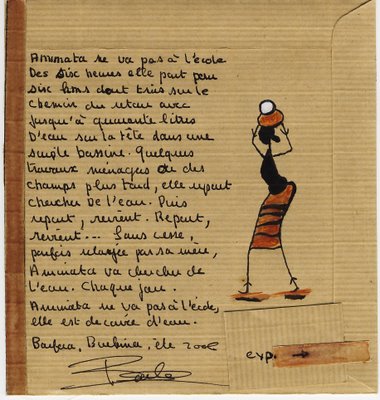 Aminata ne va pas à l'école
Dès six heures elle part pour
six kms dont trois sur le
chemin du retour avec
jusqu'à quarante litres
D'eau sur la tête dans une
simple bassine. Quelques
travaux ménagers ou des
champs plus tard, elle repart
chercher De l'eau. Puis
repart, revient. Repart,
revient... Sans cesse,
parfois relayée par sa mère,
Aminata va chercher de
l'eau. Chaque jour.
Aminata ne va pas à l'école,
elle est de corvée d'eau.
Banfora, Burkina, été
exp.